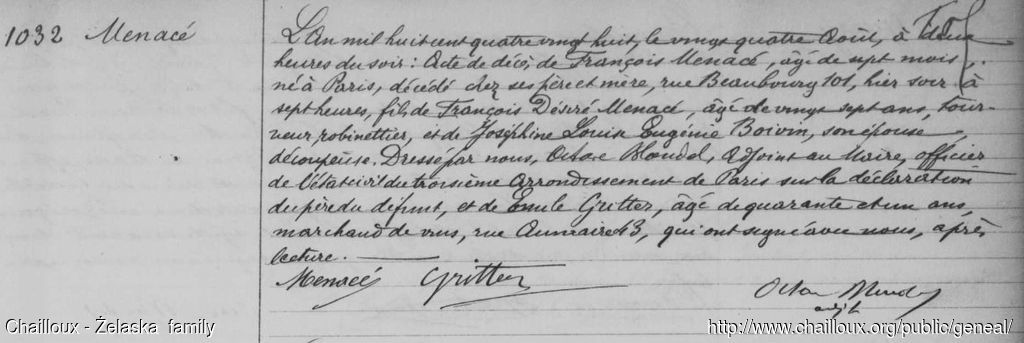 1032 Menacé
L'An mil huit cent quatre vingt huit, le vingt quatre Août, à deux
heures du soir : Acte de décès de François Menacé, âgé de sept mois,
né à Paris, décédé chez ses père et mère, rue Beaubourg 101, hier soir à
sept heures, fils de François Désiré Menacé, âgé de vingt sept ans, tour-
neur robinettier, et de Joséphine Louise Eugénie Boivin, son épouse,
découpeuse. Dressé par nous, Octave Blondel, Adjoint au Maire, officier
de l'état civil du troisième arrondissement de Paris sur la déclaration
du père du défunt, et de Emile Gritter, âgé de quarante et un ans,
marchand de vins, rue Aumaire 43, qui ont signé avec nous, après
lecture.
Menacé Gritter
adjt
Chailloux - Żelaska family
http://www.chailloux.org/public/geneal/